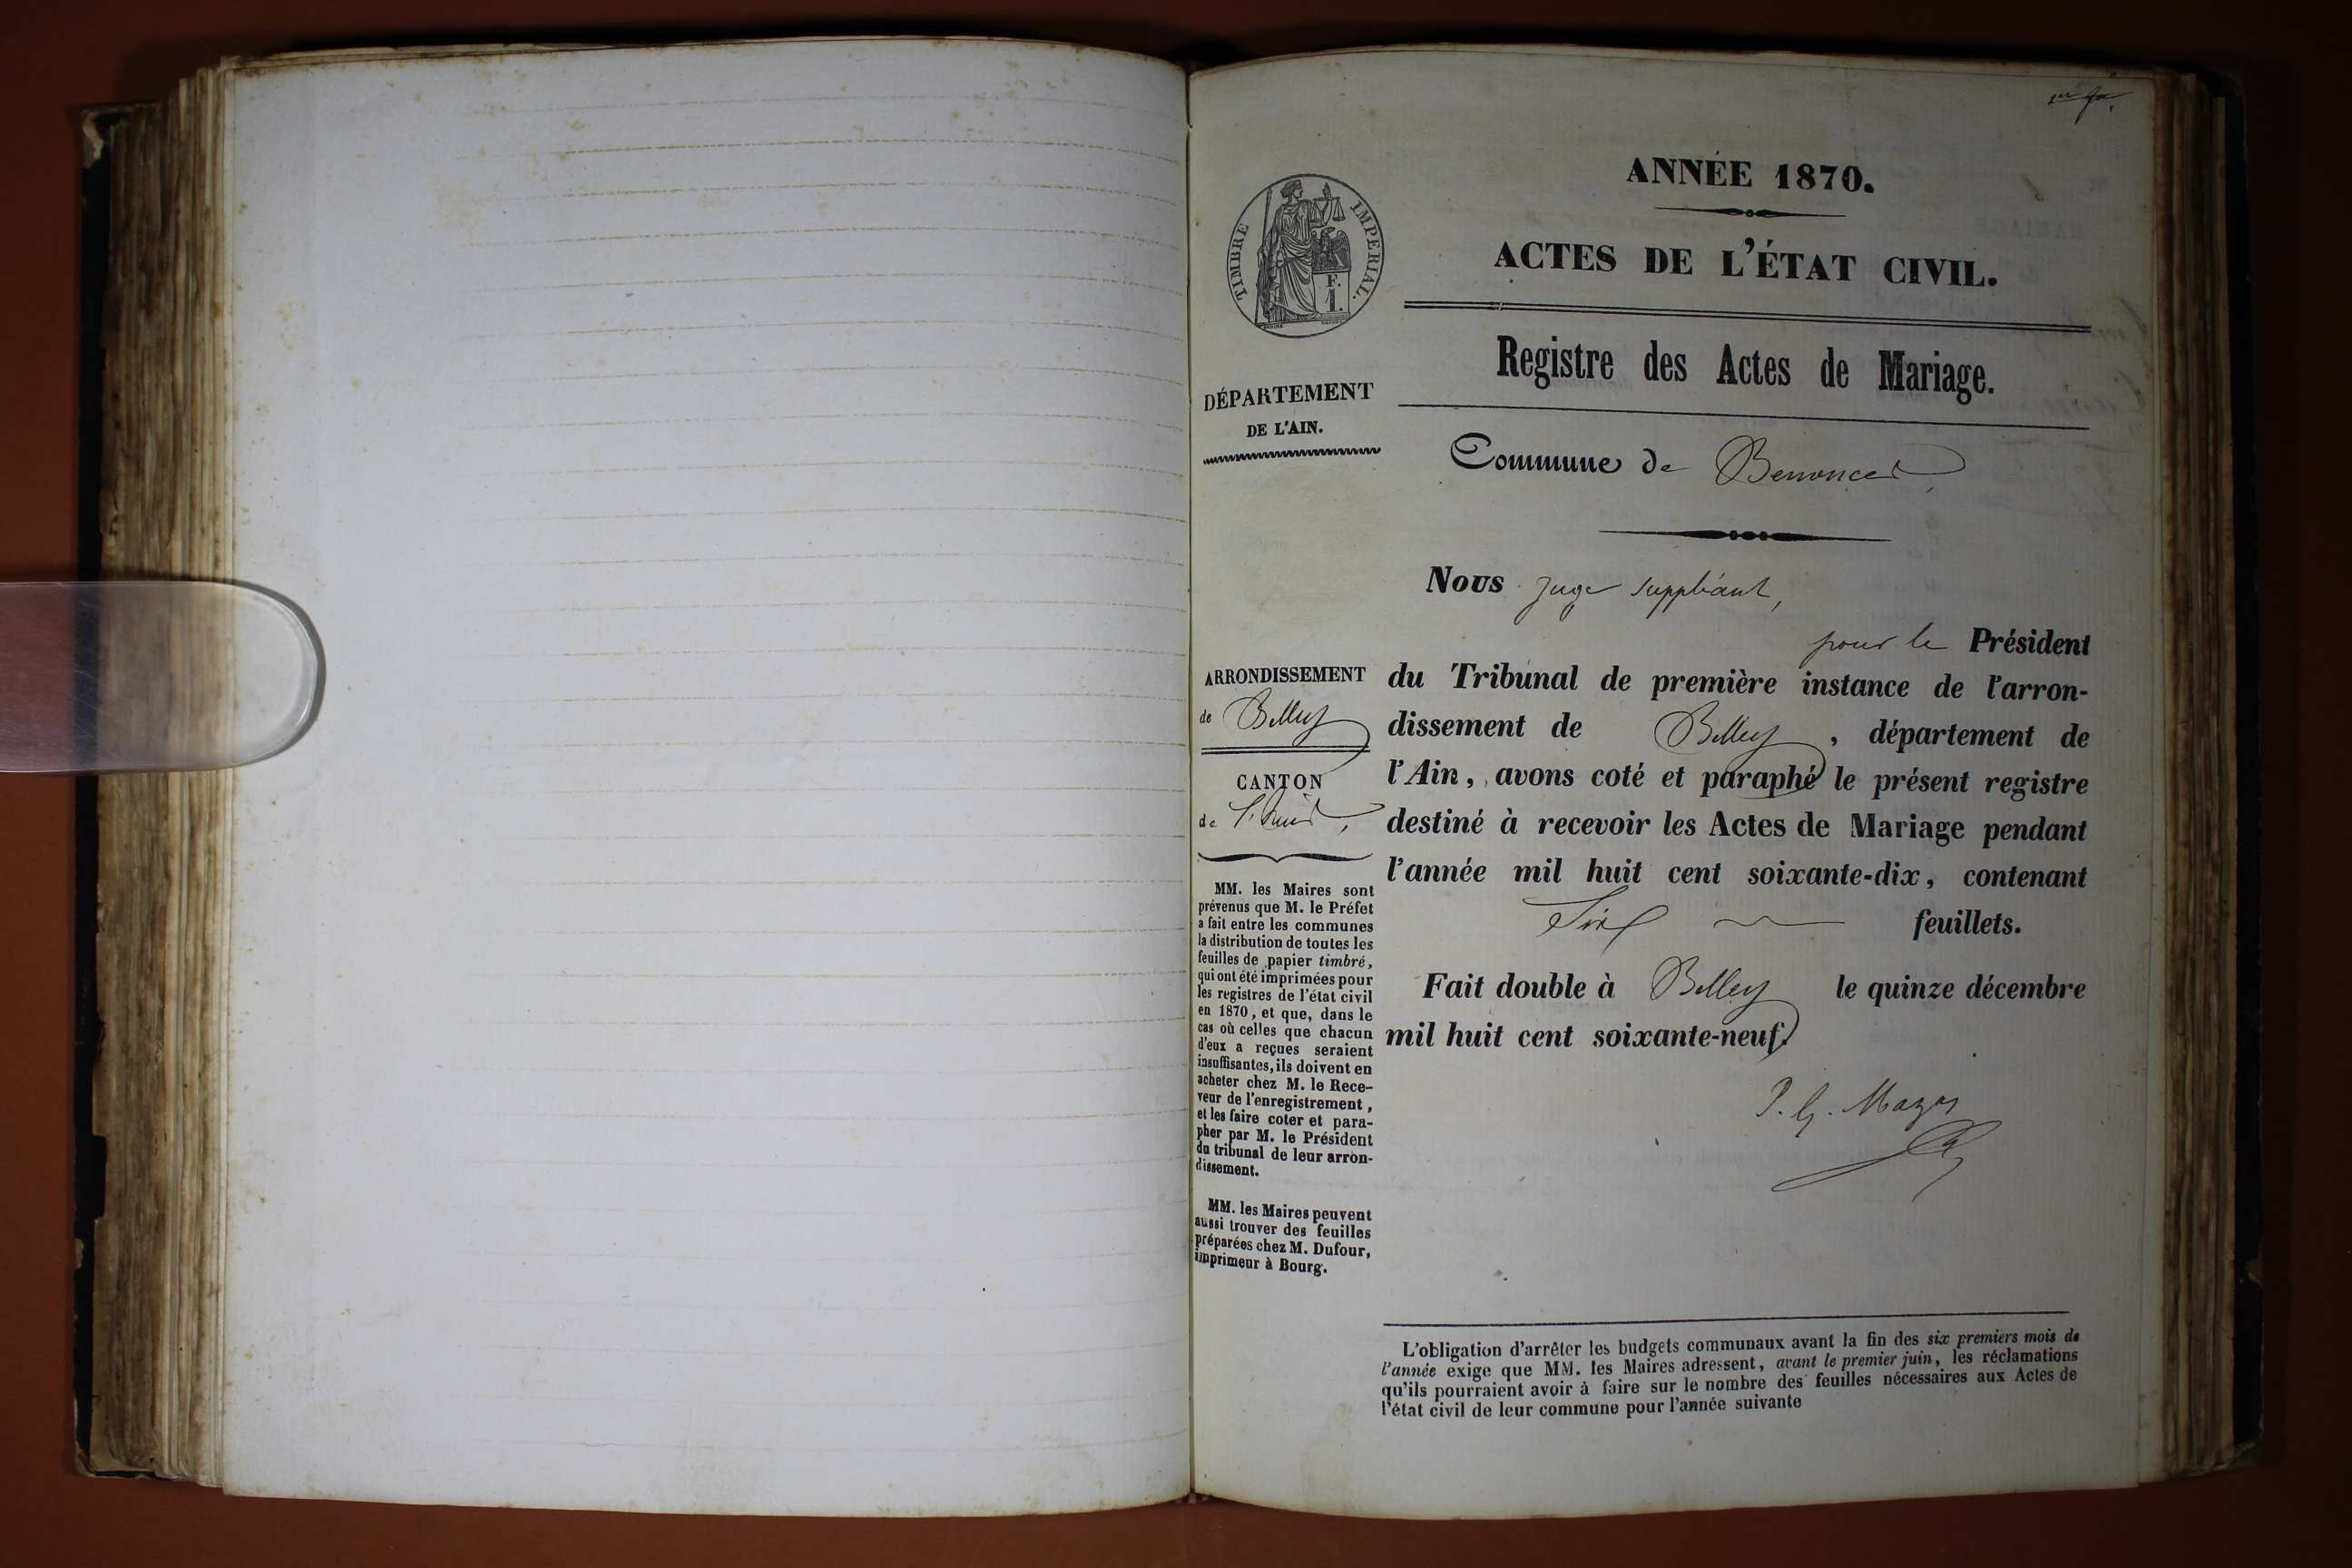 ANNÉE 1870.
ACTES DE L'ÉTAT CIVIL.
Registre des Actes de Mariage.
Commune de Benonces
Nous Juge suppléant,
pour le Président
du Tribunal de première instance de l'arron-
dissement de Belley, département de
l'Ain, avons coté et paraphé le présent registre
destiné à recevoir les Actes de Mariage pendant
l'année mil huit cent soixante-dix, contenant
Six feuillets.
Fait double à Belley le quinze décembre
mil huit cent soixante-neuf.
P. G. Mazas
TIMBRE IMPÉRIAL.
F.
1.
DÉPARTEMENT
DE L'AIN.
ARRONDISSEMENT
de Belley
CANTON
de
MM. les Maires sont
prévenus que M. le Préfet
a fait entre les communes
la distribution de toutes les
feuilles de papier timbré,
qui ont été imprimées pour
les registres de l'état civil
en 1870, et que, dans le
cas où celles que chacun
d'eux a reçues seraient
insuffisantes, ils doivent en
acheter chez M. le Rece-
veur de l'enregistrement,
et les faire coter et para-
pher par M. le Président
du tribunal de leur arron-
dissement.
MM. les Maires peuvent
aussi trouver des feuilles
préparées chez M. Dufour,
imprimeur à Bourg.
L'obligation d'arrêter les budgets communaux avant la fin des six premiers mois de
l'année exige que MM. les Maires adressent, avant le premier juin, les réclamations
qu'ils pourraient avoir à faire sur le nombre des feuilles nécessaires aux Actes de
l'état civil de leur commune pour l'année suivante